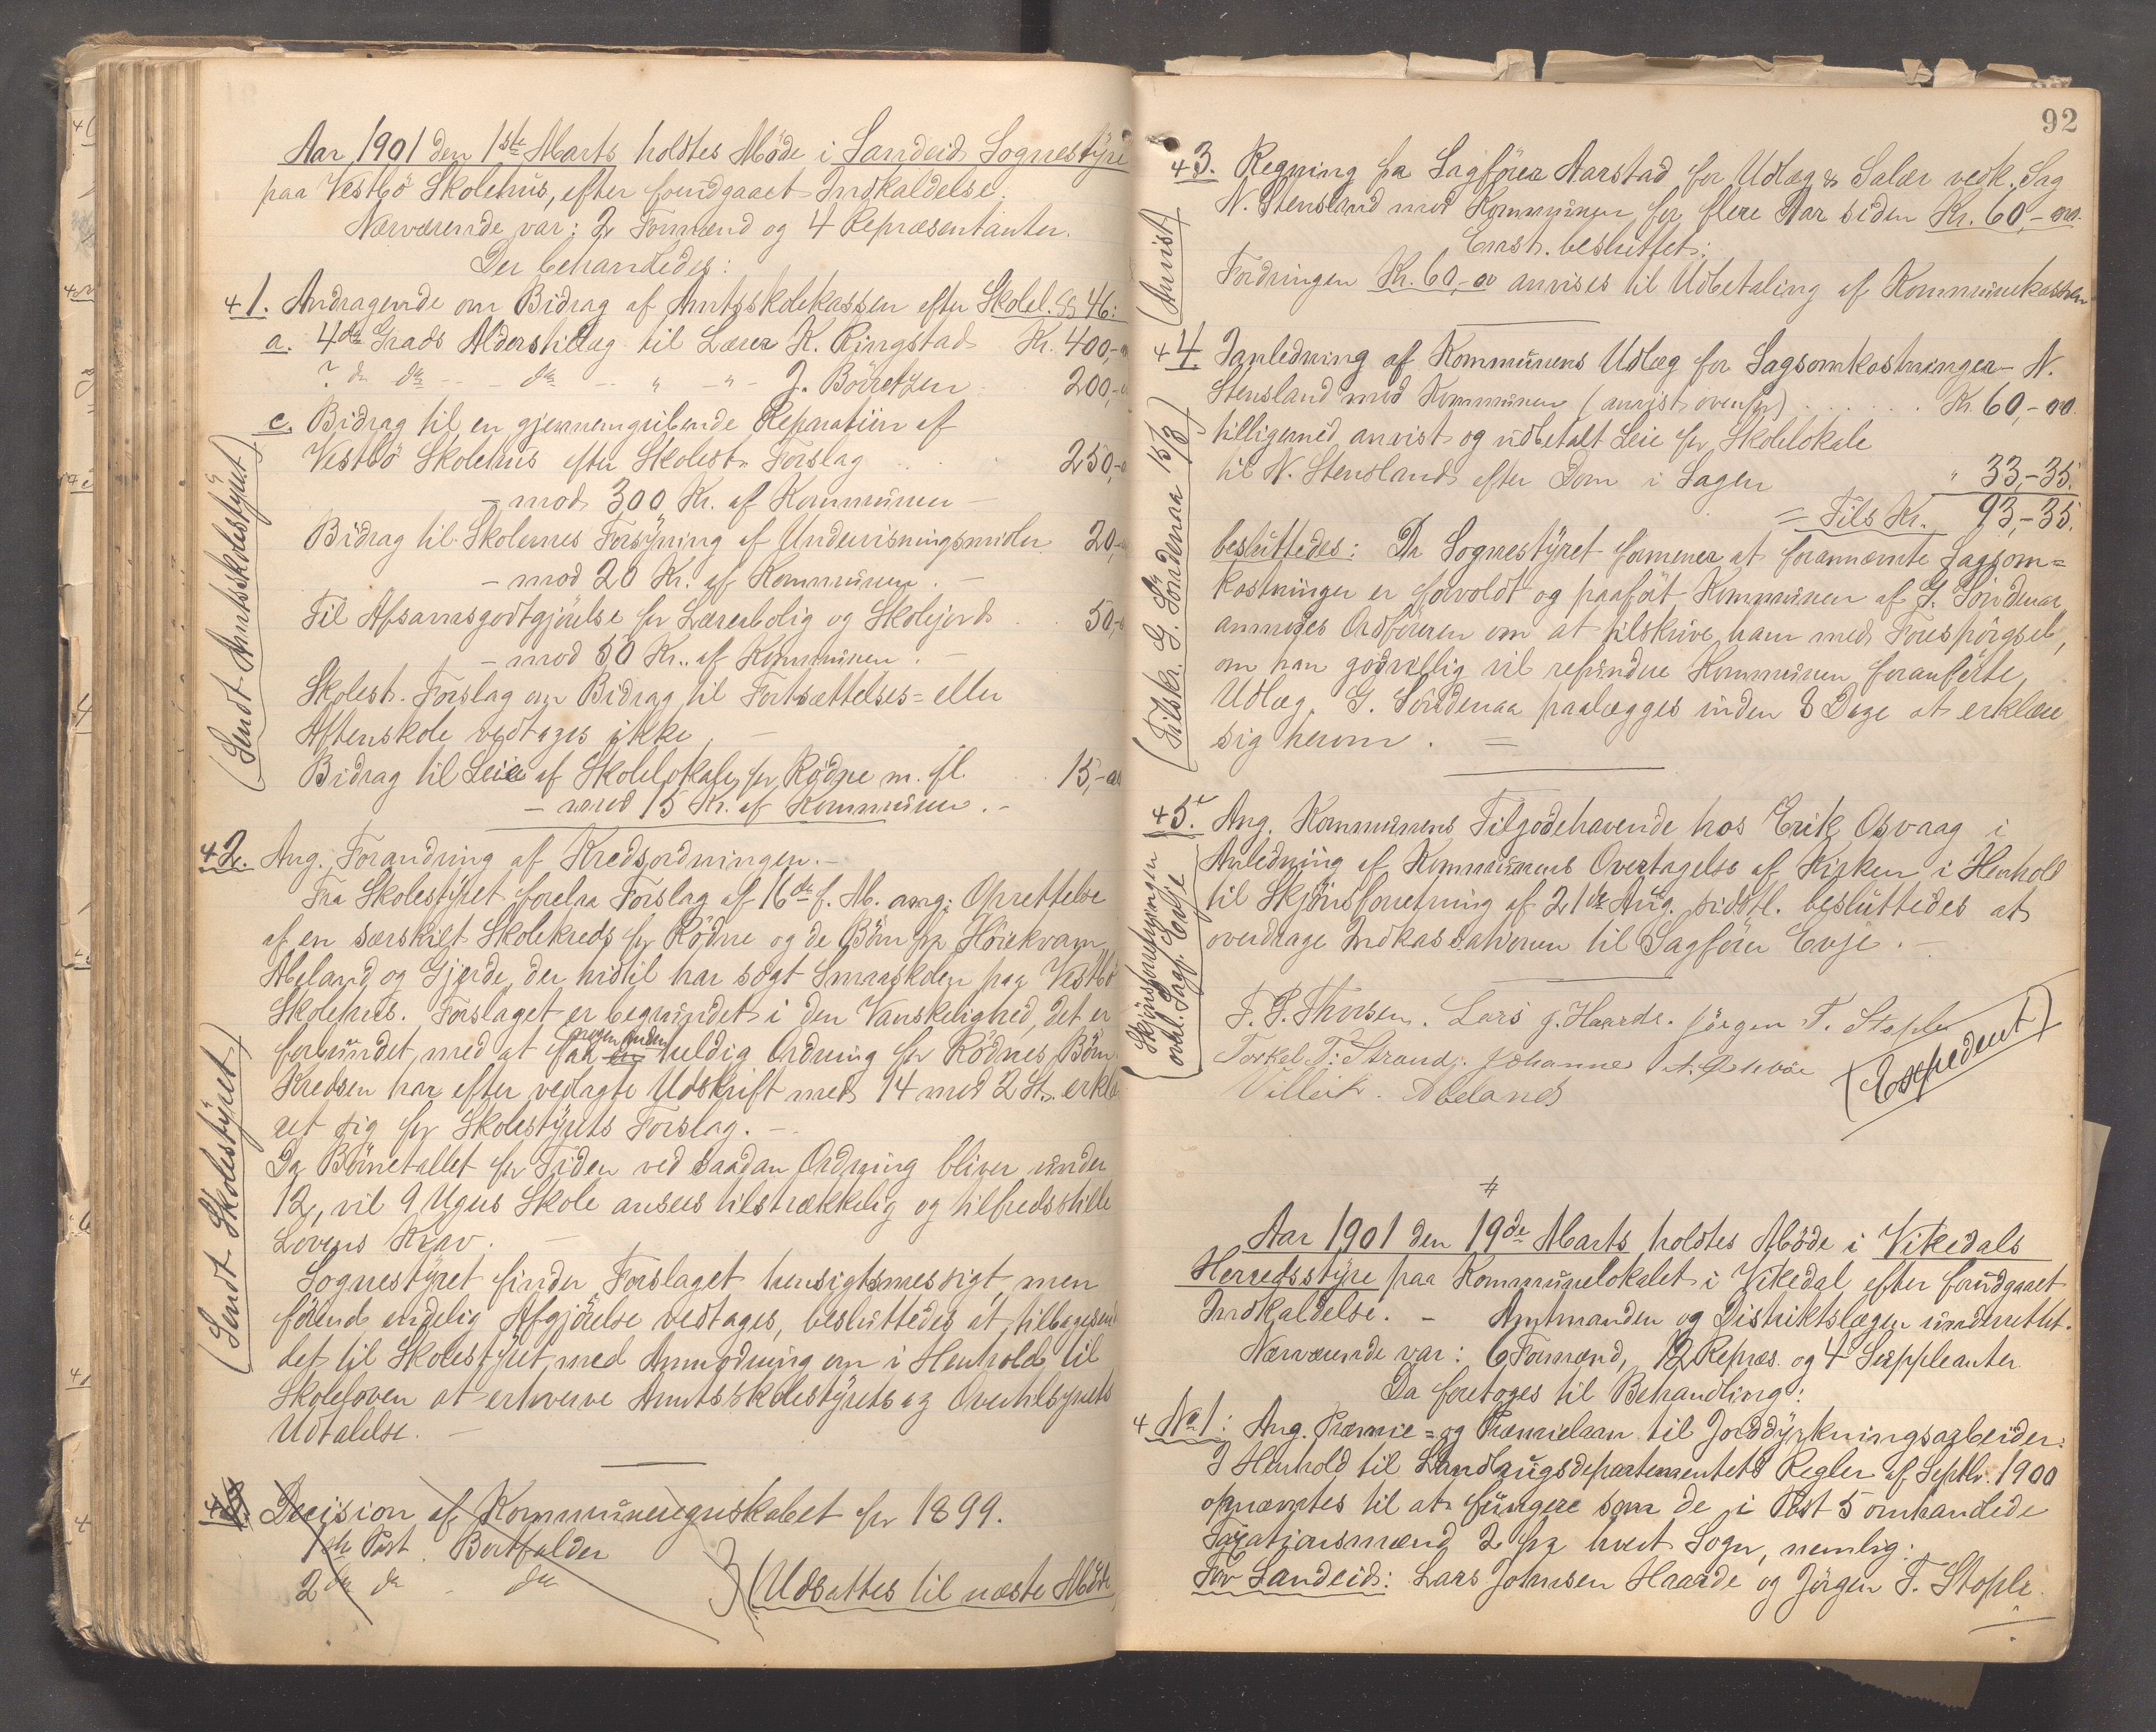 Aar 1901 den 1ste Marts holdtes Möde i Sandeid Sognestyre
paa Vestbö Skolehus, efter forudgaaet Indkaldelse.
Nærværende var: 2 Formænd og 4 Repræsentanter.
Der behandledes:
+1. Andragende om Bidrag af Amtsskolekassen efter Skolel. §§ 46:
a. 4de Grads Alderstillæg til Lærer K. Ringstad Kr. 400,-
? de do - - do - " - " - J. Börretzen 200,-
c. Bidrag til en gjennemgribende Reparation af
Vestbö Skolehus efter Skolest. Forslag 250,-
- mod 300 Kr. af Kommunen -
Bidrag til Skolernes Forsyning af Undervisningsmidler 20-
- mod 20 Kr. af Kommunen. -
Til Afsavnsgodtgjörelse for Lærerbolig og Skolejord 50,-
- mod 50 Kr. af Kommunen. -
Skolest. Forslag om Bidrag til Fortsættelses= eller
Aftenskole vedtages ikke. -
Bidrag til Leie af Skolelokale for Rödne m. fl. 15,-oo
- mod 15 Kr. af Kommunen. -
(Sendt Amtsskolestyret)
+2. Ang. Forandring af Kredsordningen. -
Fra Skolestyret forelaa Forslag af 16de f. M. ang. Oprettelse
af en særskilt Skolekreds for Rödne og de Börn fra Höiekvam,
Abeland og Gjerde, der hidtil har sögt Smaaskolen paa Vestbö
Skolehus. Forslaget er begrundet i den Vanskelighed, det er
forbundet med at faa nogen anden heldig Ordning for Rödnes Börn.
Kredsen har efter vedlagte Udskrift med 14 mod 2 St. erklæ-
ret sig for Skolestyrets Forslag. -
Da Börnetallet for Tiden ved saadan Ordning bliver under
12, vil 9 Ugers Skole ansees tilstrækkelig og tilfredsstille
Lovens Krav. -
Sognestyret finder Forslaget hensigtsmessigt, men
förend endelig Afgjörelse vedtages, besluttedes at tilbagesende
det til Skolestyret med Anmodning om i Henhold til
Skoleloven at erhverve Amtsskolestyrets og Overtilsynets
Udtalelse. -
(Sendt Skolestyret)
Decision af Kommuneregnskabet for 1899.
1ste Post. Bortfalder
2den do - do
3 (Udsattes til næste Möde
92
+3. Regning fra Sagförer Aarstad for Udlæg & Salær vedk. Sag
N. Stensland mod Kommunen for flere Aar siden Kr. 60,-oo.
Enst. besluttet:
Fordringen Kr. 60,-oo anvises til Udbetaling af Kommunekassen
(Anvist)
+4. I anledning af Kommunens Udlæg for Sagsomkostninger - N.
Stensland mod Kommunen (anvist ovenfor) . . . . . . Kr. 60,-oo.
tilligemed anvist og udbetalt Leie for Skolelokale
til N. Stensland efter Dom i Sagen " 33,-35.
= Tils Kr. 93,-35.
besluttedes: Da Sognestyret formener at forannævnte Sagsom=
kostninger er forvoldt og paafört Kommunen af G. Söndenaa
anmodes Ordföreren om at tilskrive ham med Forespörgsel,
om han godvillig vil refundere Kommunen foranförte
Udlæg. G. Söndenaa paalægges inden 8 Dage at erklære
sig herom. =
(Tilskr. G. Söndenaa 15/3)
+5. Ang. Kommunens Tilgodehavende hos Erik Osvaag i
Anledning af Kommunens Overtagelse af Kirken i Henhold
til Skjönsforretning af 21de Aug. sidstl. besluttedes at
overdrage Indkassationen til Sagförer Evje. -
(Skjönsforretningen
overl. Sagf. Evje)
T. P. Thorsen. Lars J. Haarde. Jörgen T. Stople
Torkel T. Strand. Johannes A.
Abeland
(Expederet)
Aar 1901 den 19de Marts holdtes Möde i Vikedals
Herredsstyre paa Kommunelokalet i Vikedal efter forudgaaet
Indkaldelse. - Amtmanden og Distriktslægen underrettet.
Nærværende var: 6 Formænd, 12 Repræs. og 4 Suppleanter
Da foretoges til Behandling:
+ No 1: Ang. Præmie= og Præmielaan til Jorddyrkningsarbeider:
I Henhold til Landbrugsdepartementets Regler af Septbr. 1900
opnævntes til at fungere som de i Post 5 omhandlede
Taxationsmænd 2 fra hvert Sogn, nemlig:
For Sandeid: Lars Johnsen Haarde og Jörgen T. Stople.